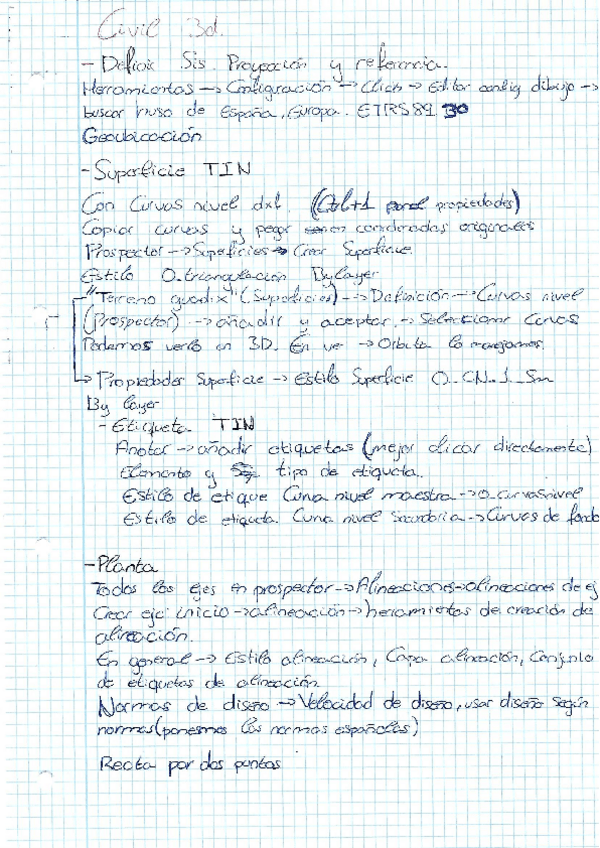 Civil 3d.
- Definir Sis. Proyección y referencia.
Herramientas → Configuración → Click → Editar config dibujo →
buscar huso de España, Europa. ETRS89 30
Geoubicación
- Superficie TIN
Con Curvas nivel dxf. (Ctrl+1 panel propiedades)
Copiar curvas y pegar coordenadas originales
Prospector → Superficies → Crear Superficie.
Estilo O_triangulación Bylayer
"Terreno guadix" (Superficies) → Definición → Curvas nivel
(Prospector) → añadir y aceptar. → Seleccionar Curvas
Podemos verlo en 3D. En ver → Orbita lo manejamos.
→ Propiedades Superficie → Estilo Superficie O_CN_1_5m
By layer
- Etiqueta TIN
Anotar → añadir etiquetas (mejor clicar directamente)
Elemento y tipo de etiqueta.
Estilo de etique Curva nivel maestra → O_curvasnivel
Estilo de etiqueta. Curva nivel secundaria → Curvas de fondo
- Planta
Todos los ejes en prospector → Alineaciones → alineaciones de ej
Crear eje: inicio → alineación → herramientas de creación de
alineación.
En general → Estilo alineación, Capa alineación, Conjunto
de etiquetas de alineación
Normas de diseño → Velocidad de diseño, usar diseño según
normas (ponemos las normas españolas)
Recta por dos puntos